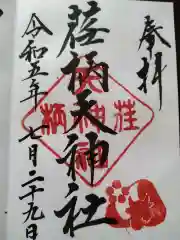 奉拝
荏柄天神社
令和五年七月二十九日
荏
柄